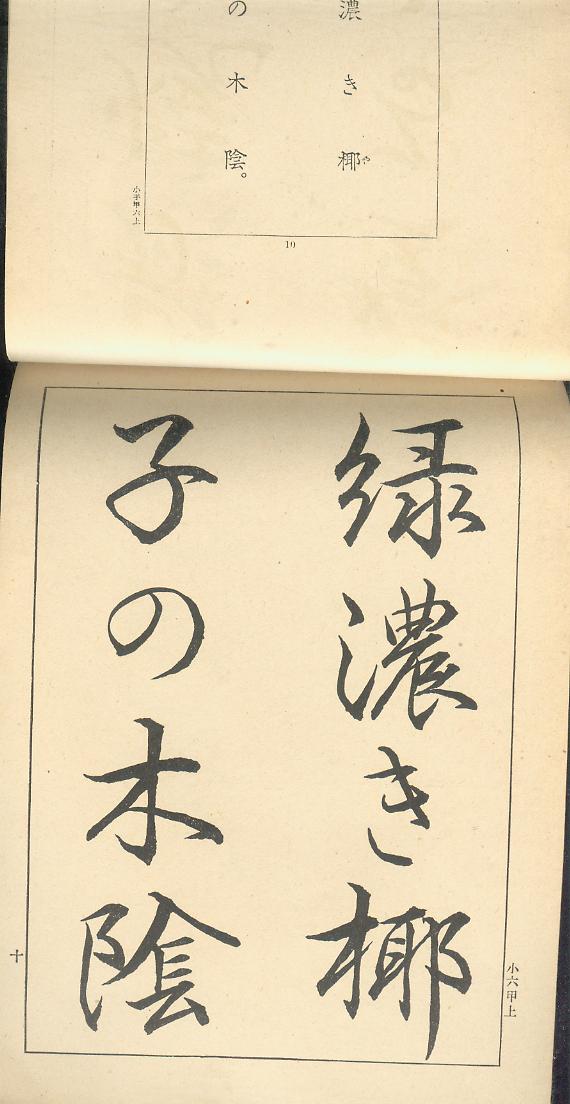 濃き椰や
の木陰。
小手甲六上
10
緑濃き椰
子の木陰
小六甲上
十